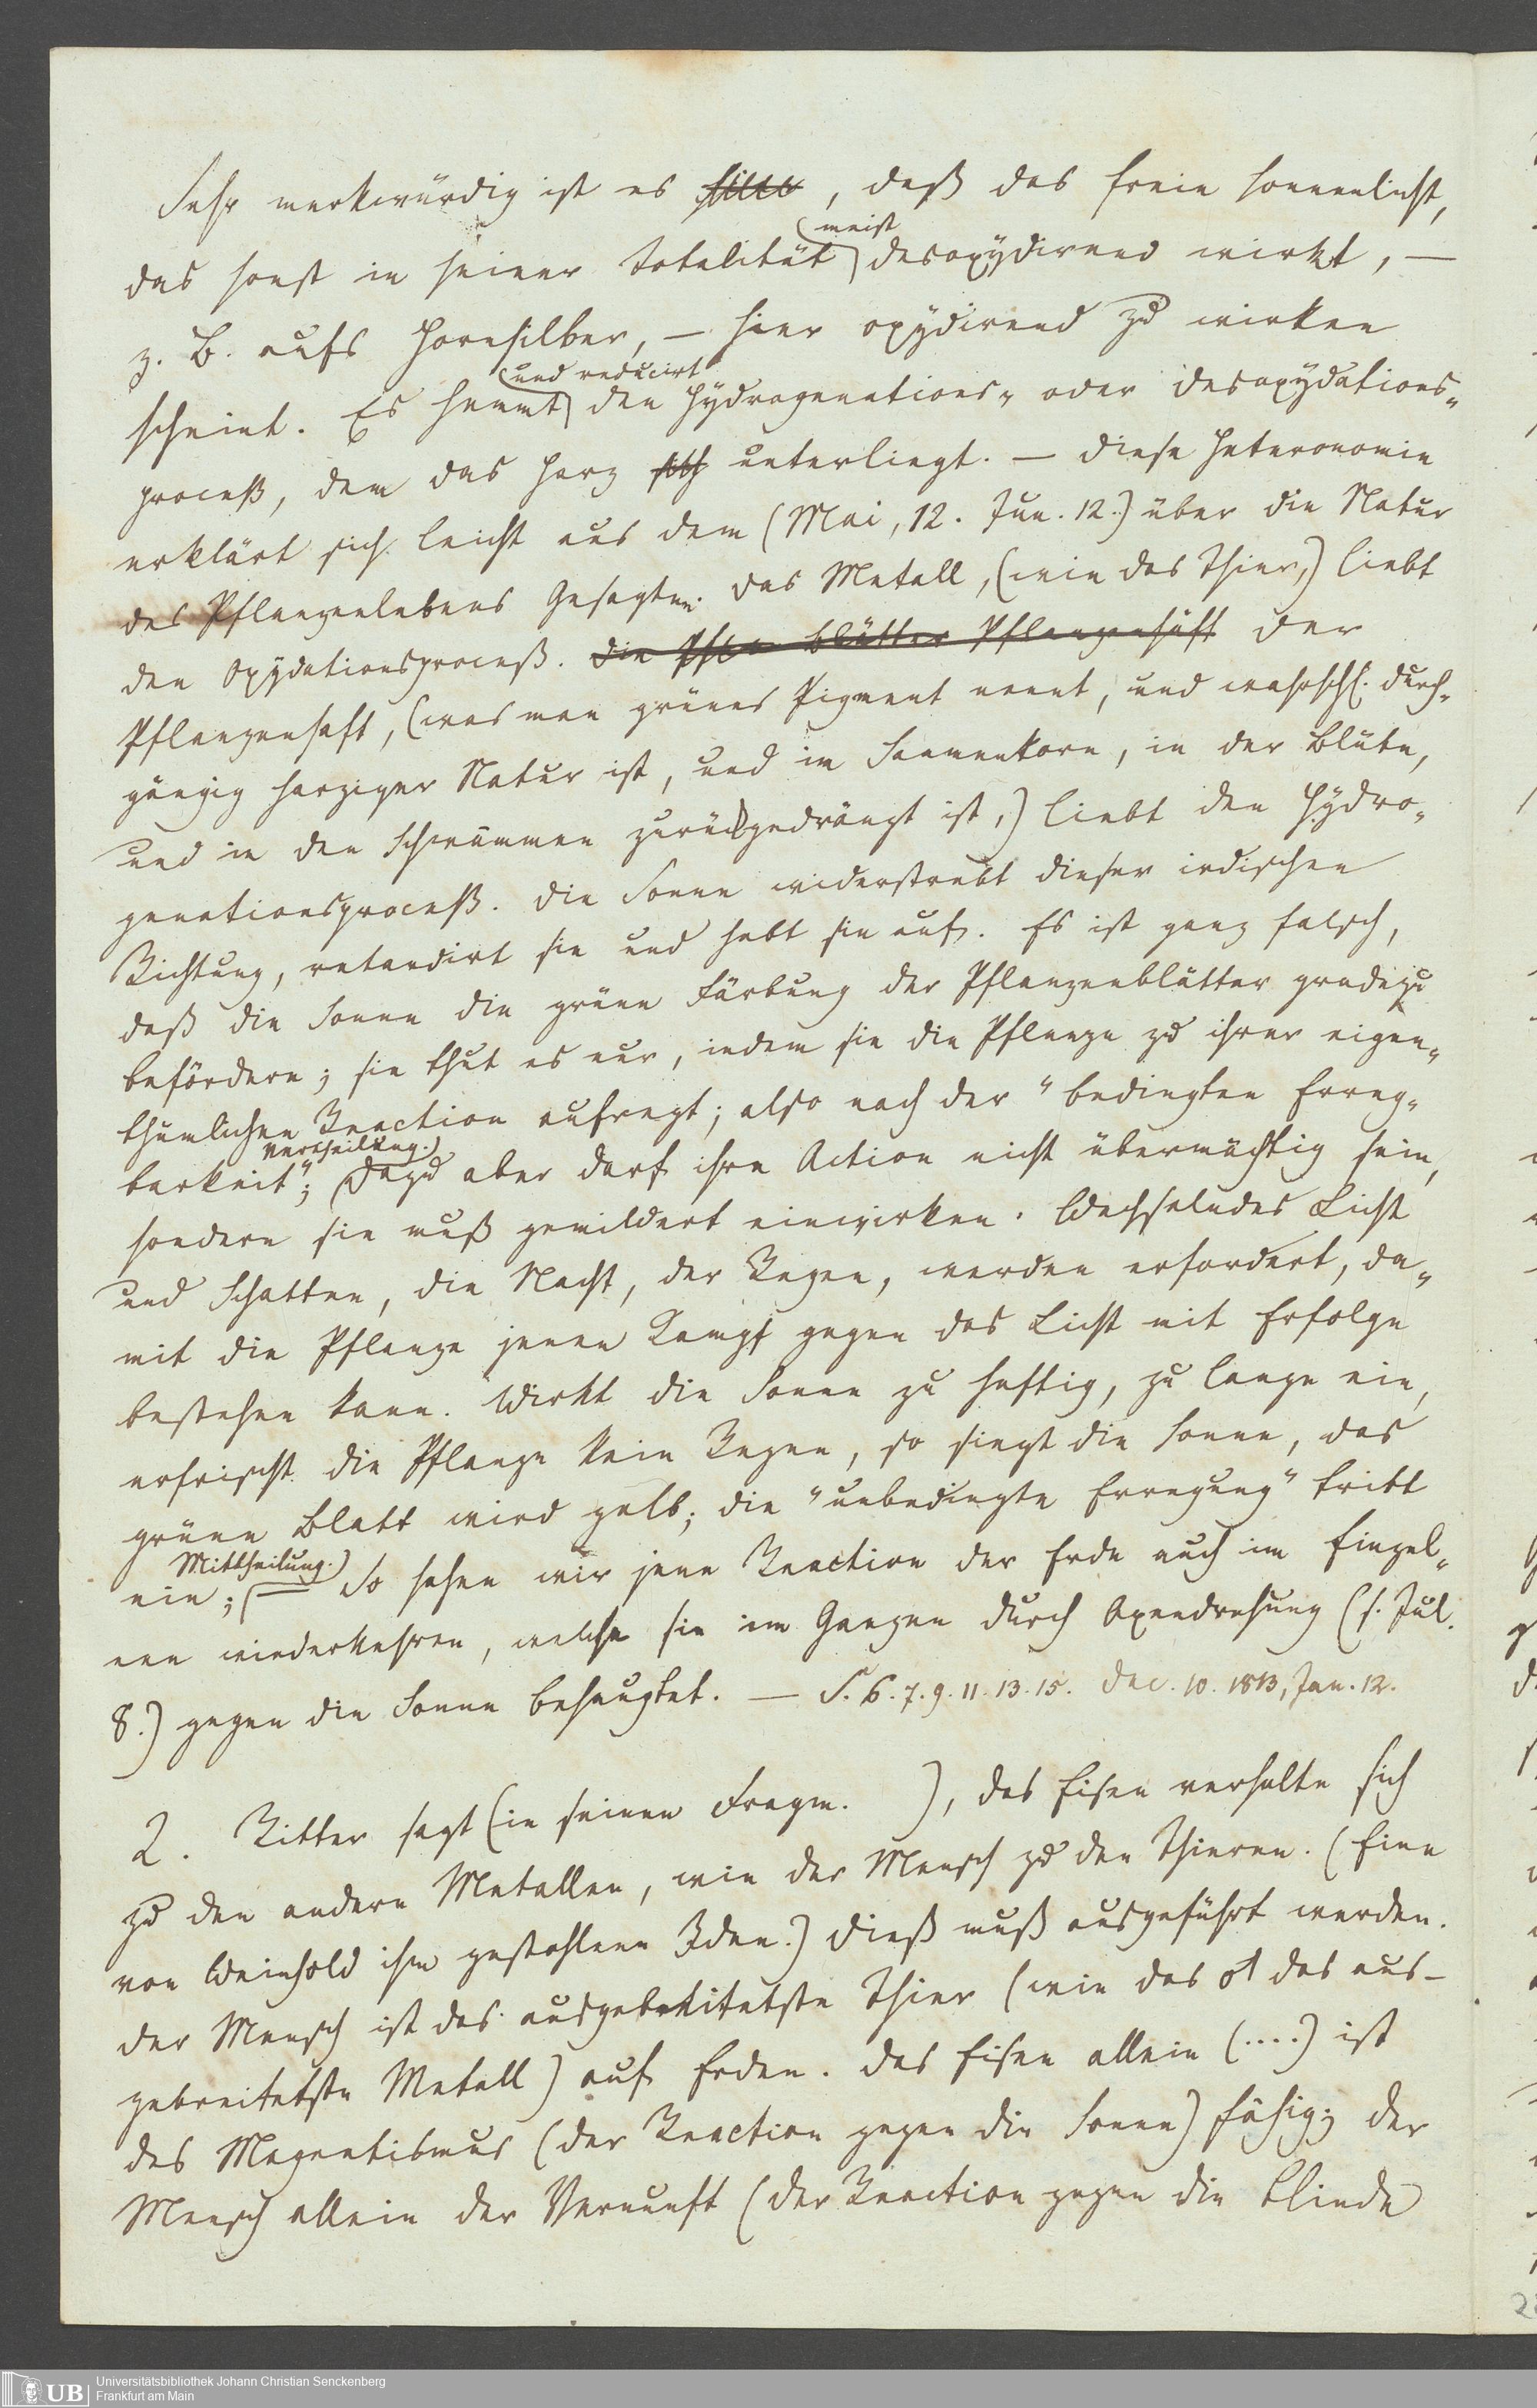 Sehr merkwürdig ist es , daß das freie Sonnenlicht,
das sonst in seiner Totalität meist desoxydirend wirkt, —
z. B. aufs Hornsilber, — hier oxydirend zu wirken
scheint. Es hemmt und reducirt den Hydrogenations- oder Desoxydations-
proceß, dem das Harz unterliegt. — Diese Heteronomie
erklärt sich leicht aus dem (Mai, 12. Jun. 12.) über die Natur
des Pflanzenlebens Gesagten. Das Metall, (wie das Thier,) liebt
den Oxydationsproceß. Die Pfla Blätter Pflanzensäft Der
Pflanzensaft, (was man grünes Pigment nennt, und wahrschl. durch-
gängig harziger Natur ist, und im Saamenkorn, in der Blüte,
und in den Schwämmen zurückgedrängt ist,) liebt den Hydro-
genationsproceß. Die Sonne widerstrebt dieser irdischen
Richtung, retardirt sie und hebt sie auf. Es ist ganz falsch,
daß die Sonne die grüne Färbung der Pflanzenblätter gradezu
befördere; sie thut es nur, indem sie die Pflanze zu ihrer eigen-
thümlichen Reaction aufregt; also nach der "bedingten Erreg-
barkeit"; Vertheilung.) Dazu aber darf ihre Action nicht übermächtig sein,
sondern sie muß gemildert einwirken. Wechselndes Licht
und Schatten, die Nacht, der Regen, werden erfordert, da-
mit die Pflanze jenen Kampf gegen das Licht mit Erfolge
bestehen kann. Wirkt die Sonne zu heftig, zu lange ein,
erfrischt die Pflanze kein Regen, so siegt die Sonne, das
grüne Blatt wird gelb; die "unbedingte Erregung" tritt
ein; (Mittheilung.) — So sehen wir jene Reaction der Erde auch im Einzel-
nen wiederkehren, welche sie im Ganzen durch Axendrehung (s. Jul.
8.) gegen die Sonne behauptet. — S. 6. 7. 9. 11. 13. 15. Dec. 10. 1813, Jan. 12.
2. Ritter sagt (in seinen Fragm. ), das Eisen verhalte sich
zu den andern Metallen, wie der Mensch zu den Thieren. (Eine
von Weinhold ihm gestohlene Idee.) Dieß muß ausgeführt werden.
Der Mensch ist das ausgebreitetste Thier (wie das ♂ das aus-
gebreitetste Metall) auf Erden. Das Eisen allein (....) ist
des Magnetismus (der Reaction gegen die Sonne) fähig; der
Mensch allein der Vernunft (der Reaction gegen die blinde
Universitätsbibliothek Johann Christian Senckenberg
Frankfurt am Main
UB